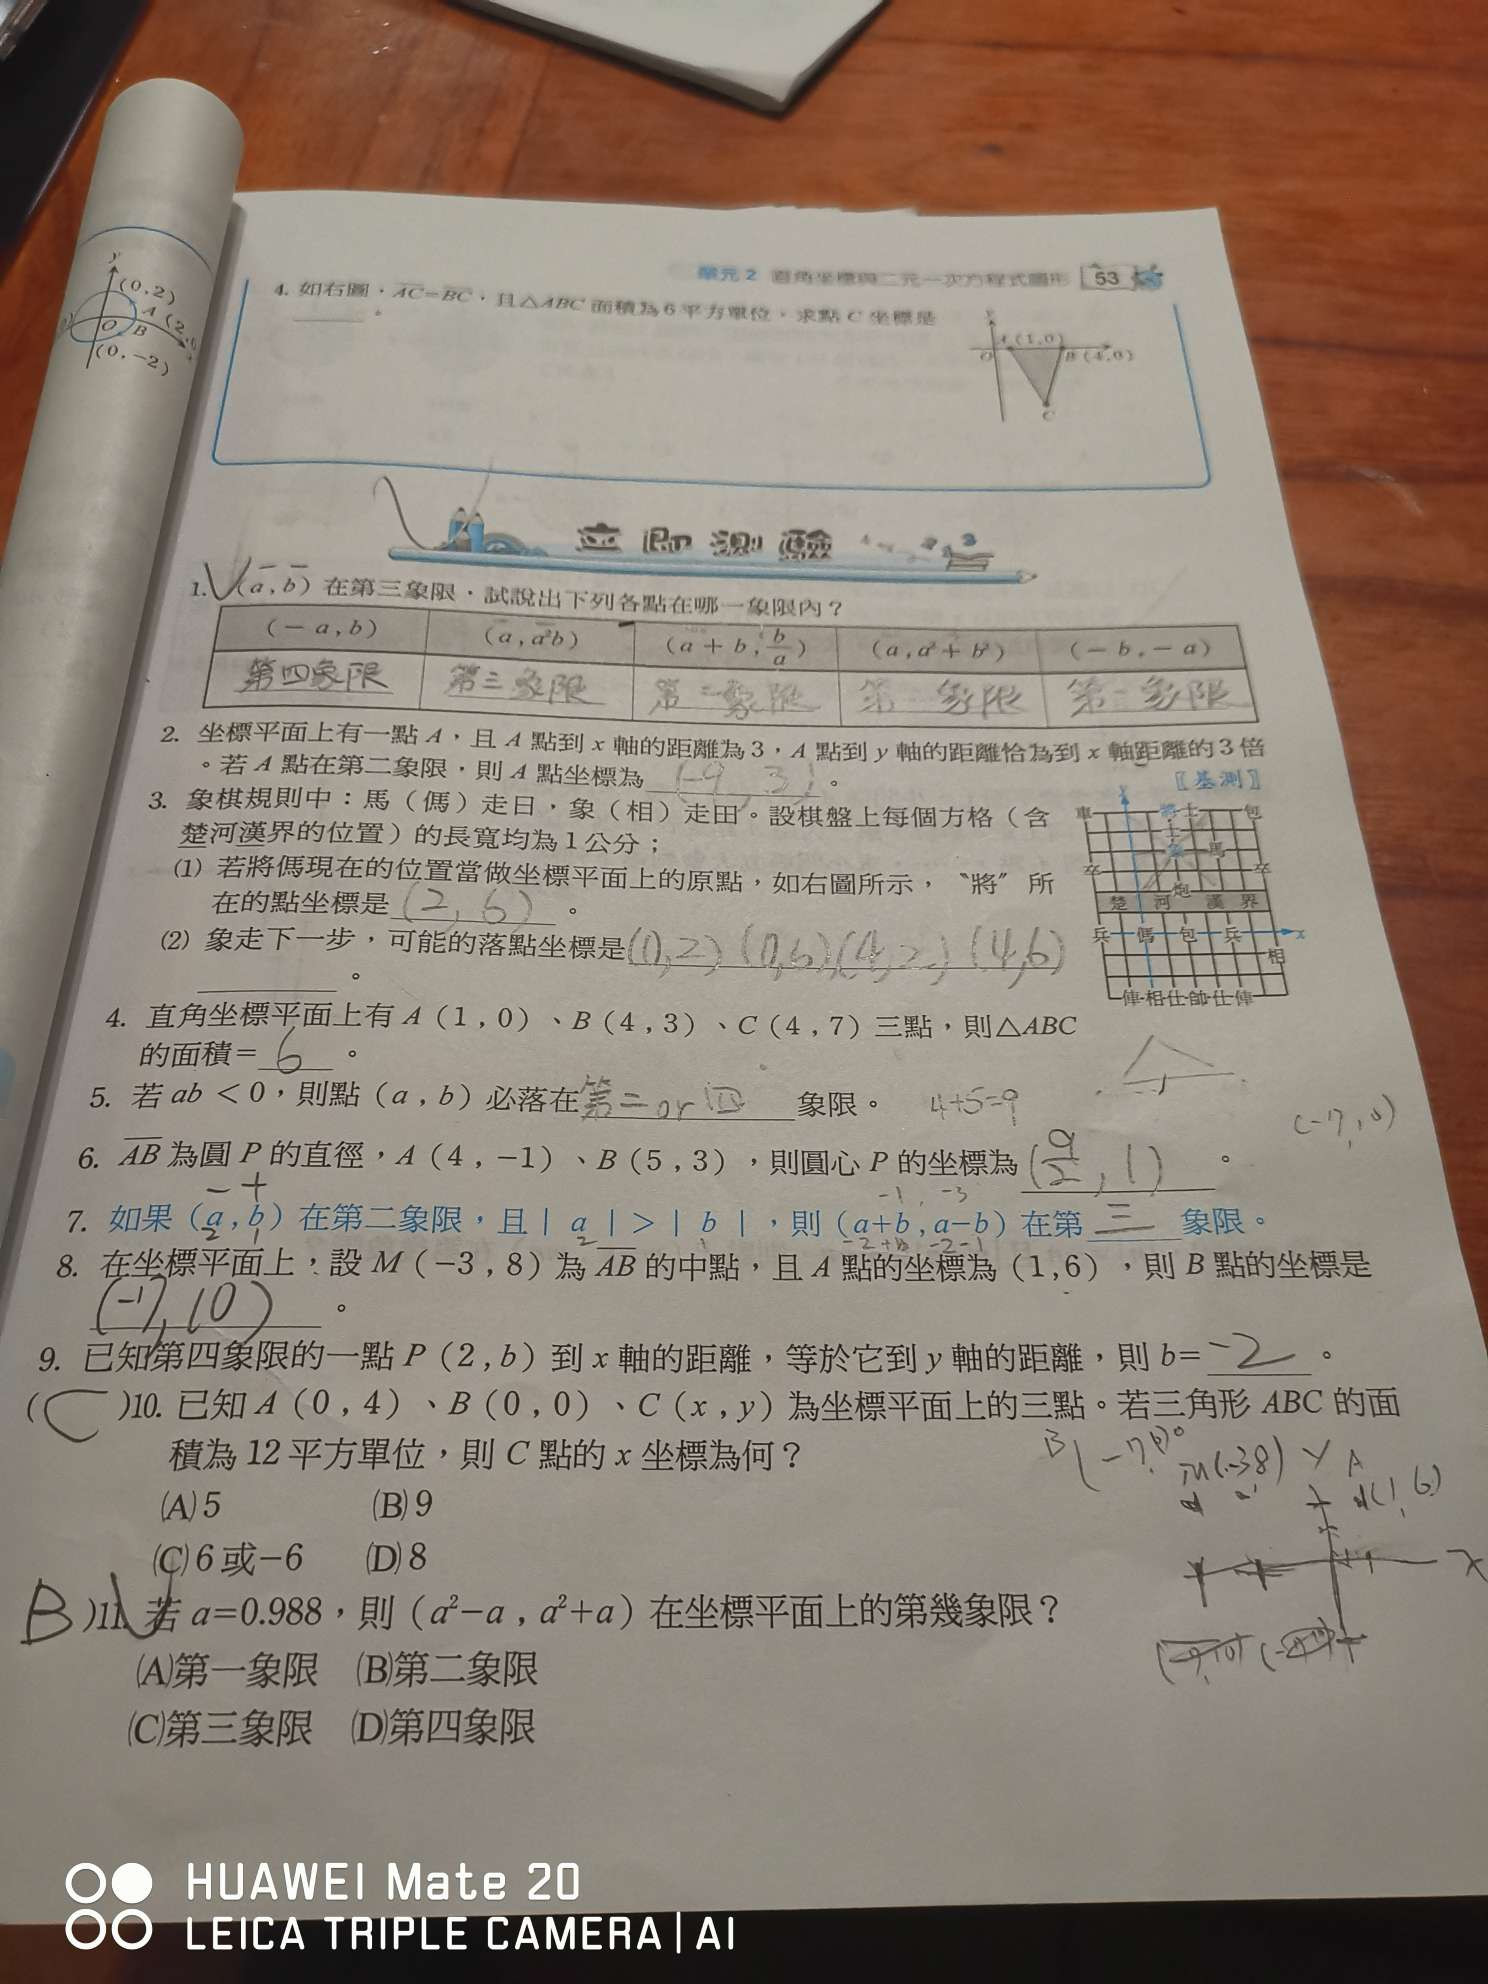 單元2 直角坐標與二元一次方程式圖形 53
y
(0,2)
A (2,
O B
(0,-2)
4. 如右圖,AC=BC,且△ABC面積為6平方單位,求點C坐標是
______。
y
A(1,0)
O B(4,0)
C
立即測驗
1. (a,b)在第三象限,試說出下列各點在哪一象限內?
(-a,b) (a,a²b) (a+b,b/a) (a,a²+b²) (-b,-a)
第四象限 第三象限 第二象限 第 象限 第一象限
2. 坐標平面上有一點A,且A點到x軸的距離為3,A點到y軸的距離恰為到x軸距離的3倍
。若A點在第二象限,則A點坐標為(-9,3)。
〖基測〗
3. 象棋規則中:馬(傌)走日,象(相)走田。設棋盤上每個方格(含
楚河漢界的位置)的長寬均為1公分;
(1) 若將傌現在的位置當做坐標平面上的原點,如右圖所示,〝將〞所
在的點坐標是(2,6)。
(2) 象走下一步,可能的落點坐標是(0,2)(0,6)(4,2)(4,6)
______。
y
車 將 士 包
士
象 馬
卒 卒
炮
楚 河 漢 界
兵 傌 包 兵 x
相
俥 相 仕 帥 仕 俥
4. 直角坐標平面上有A(1,0)、B(4,3)、C(4,7)三點,則△ABC
的面積=6。
5. 若ab<0,則點(a,b)必落在第二or四象限。
4+5=9
6. AB為圓P的直徑,A(4,-1)、B(5,3),則圓心P的坐標為(9/2,1)。
- +
-1, -3
7. 如果(a,b)在第二象限,且|a|>|b|,則(a+b,a-b)在第三象限。
8. 在坐標平面上,設M(-3,8)為AB的中點,且A點的坐標為(1,6),則B點的坐標是
(-7,10)。
9. 已知第四象限的一點P(2,b)到x軸的距離,等於它到y軸的距離,則b=-2。
(C)10. 已知A(0,4)、B(0,0)、C(x,y)為坐標平面上的三點。若三角形ABC的面
積為12平方單位,則C點的x坐標為何?
(A)5 (B)9
(C)6或-6 (D)8
B
A
(1,6)
x
B)11. 若a=0.988,則(a²-a,a²+a)在坐標平面上的第幾象限?
(A)第一象限 (B)第二象限
(C)第三象限 (D)第四象限
HUAWEI Mate 20
LEICA TRIPLE CAMERA | AI